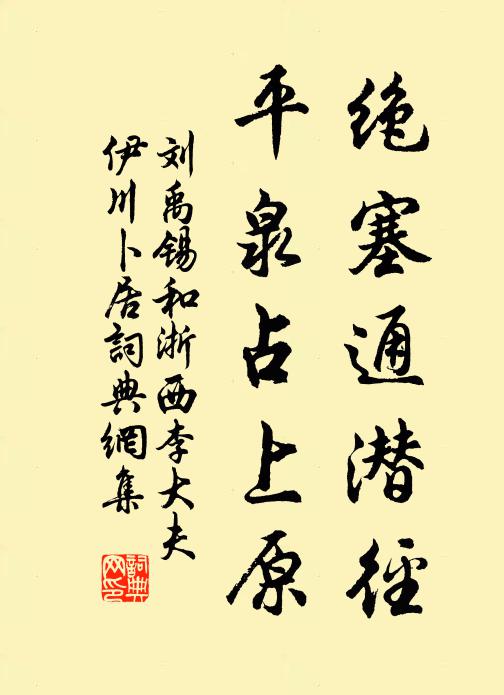 绝塞通潜径
平泉占上原
刘禹锡和浙西李大夫
伊川卜居詞典網集
詞典
网印